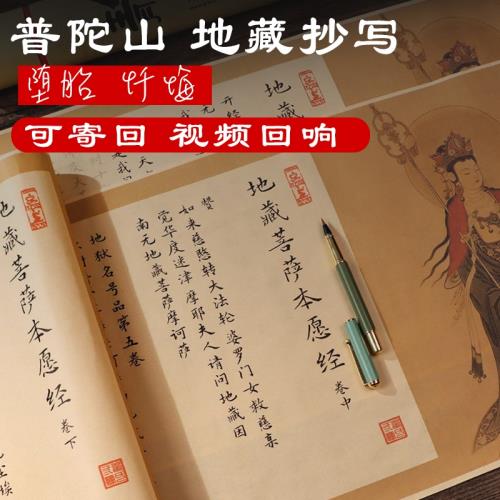 普陀山 地藏抄写
堕胎 忏悔
可寄回 视频回响
开经
地藏
地藏菩萨本愿经 卷中
赞
如来慈愍转大法轮 婆罗门女救慈亲
觉华度迷津摩耶夫人请问地藏因
南无地藏菩萨摩诃萨
地狱名号品第五卷
地藏菩萨本愿经 卷下